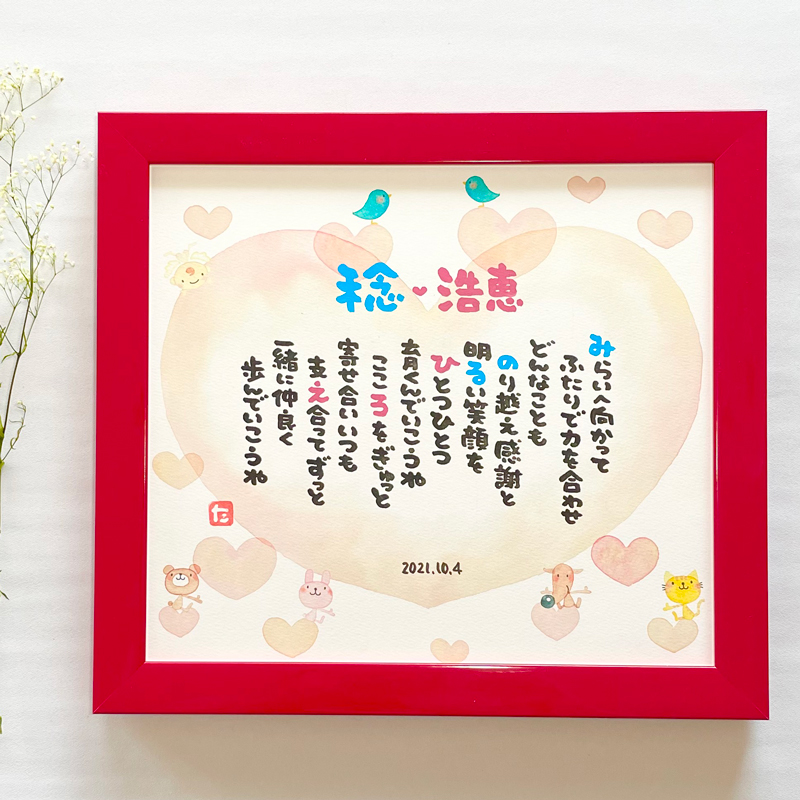 稔♥浩恵
みらいへ向かって
ふたりで力を合わせ
どんなことも
のり越え感謝と
明るい笑顔を
ひとつひとつ
育くんでいこうね
こころをぎゅっと
寄せ合いいつも
支え合ってずっと
一緒に仲良く
歩んでいこうね
た
2021.10.4